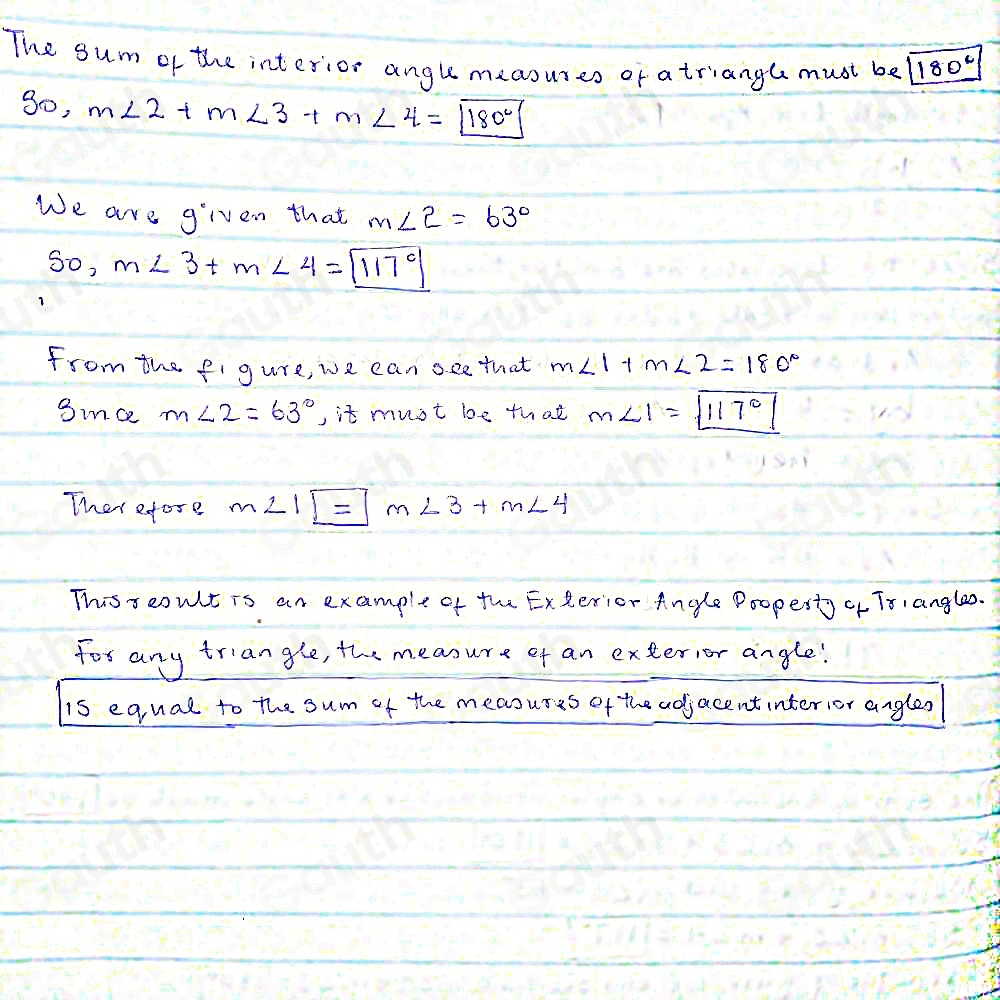 The sum of the interior angle measures of a triangle must be 180°
So, m∠2 + m∠3 + m∠4 = 180°
We are given that m∠2 = 63°
So, m∠3 + m∠4 = 117°
From the figure, we can see that m∠1 + m∠2 = 180°
Since m∠2 = 63°, it must be that m∠1 = 117°
Therefore m∠1 = m∠3 + m∠4
This result is an example of the Exterior Angle Property of Triangles.
For any triangle, the measure of an exterior angle:
is equal to the sum of the measures of the adjacent interior angles
Gauth